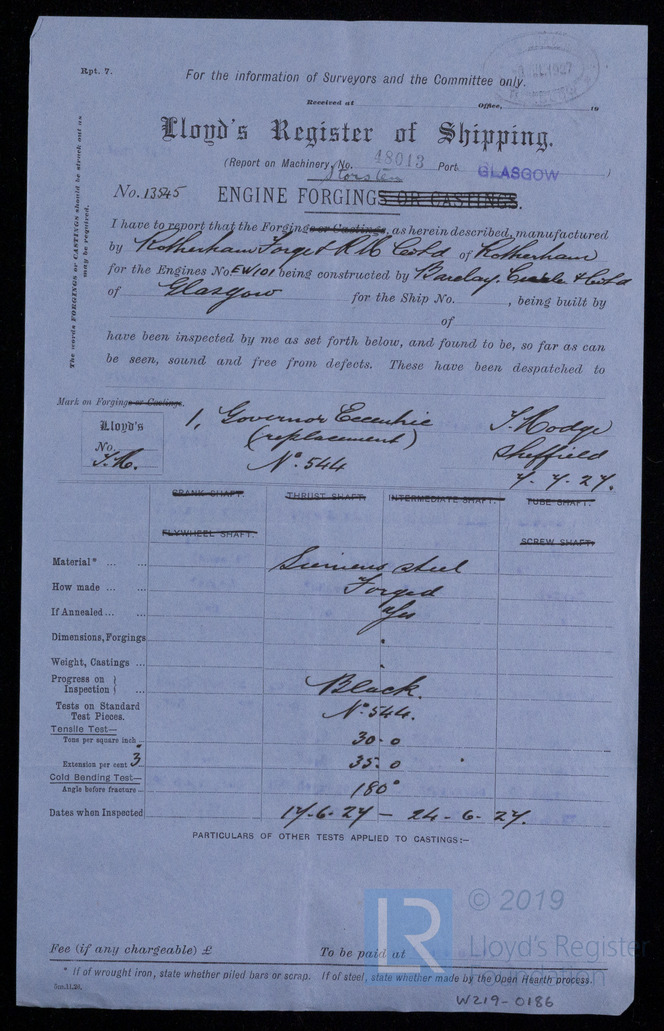 Rpt. 7.
For the information of Surveyors and the Committee only.
Received at Office, 19
Lloyd's Register of Shipping.
(Report on Machinery, No. 48013 Port GLASGOW )
No. 13545 ENGINE FORGINGS OR CASTINGS.
The words FORGINGS or CASTINGS should be struck out as
may be required.
I have to report that the Forgings or Castings, as herein described, manufactured
by Rotherham Forge & R M Co Ltd of Rotherham
for the Engines No EW101 being constructed by Barclay, Curle & Co Ld
of Glasgow for the Ship No. , being built by
of
have been inspected by me as set forth below, and found to be, so far as can
be seen, sound and free from defects. These have been despatched to
Mark on Forgings or Castings.
Lloyd's
No.
T.H.
1, Governor Eccentric
(replacement)
No. 544
T. Hodge
Sheffield
7. 7. 27.
CRANK SHAFT. THRUST SHAFT. INTERMEDIATE SHAFT. TUBE SHAFT.
FLYWHEEL SHAFT. SCREW SHAFT.
Material* ... ... Siemens steel
How made ... ... Forged
If Annealed ... ... Yes
Dimensions, Forgings
Weight, Castings ...
Progress on
Inspection } ... Black.
Tests on Standard
Test Pieces. No. 544.
Tensile Test—
Tons per square inch 30.0
Extension per cent 3" 35.0
Cold Bending Test—
Angle before fracture 180°
Dates when Inspected 17.6.27 — 24.6.27.
PARTICULARS OF OTHER TESTS APPLIED TO CASTINGS:—
Fee (if any chargeable) £ To be paid at
* If of wrought iron, state whether piled bars or scrap. If of steel, state whether made by the Open Hearth process.
LR © 2019
Lloyd's Register
Foundation
W219-0186